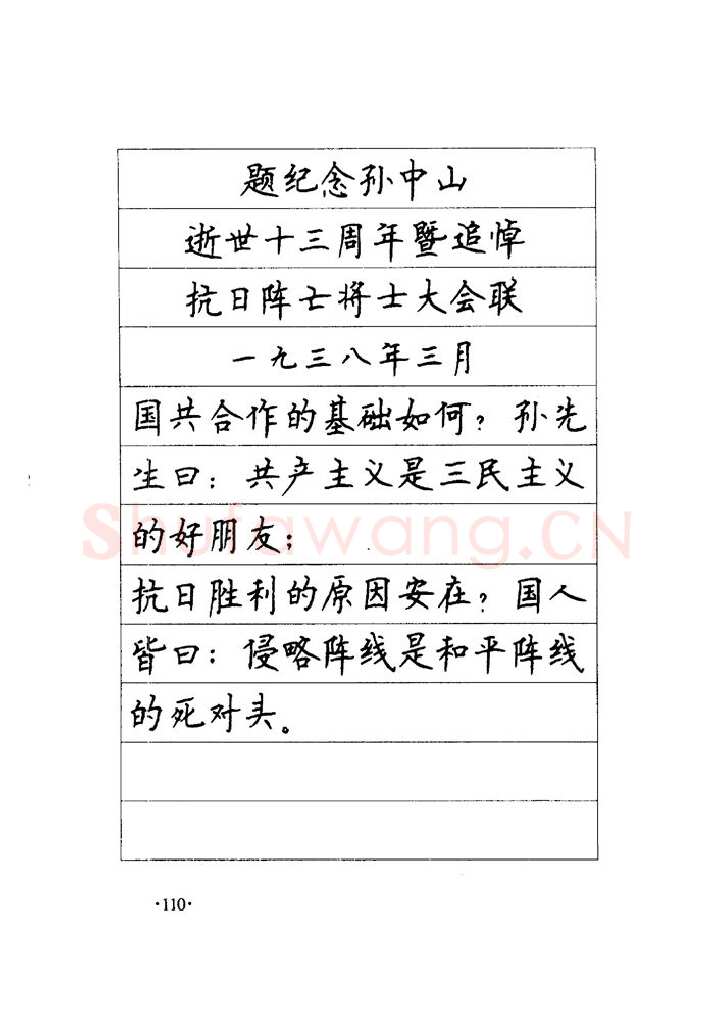 题纪念孙中山
逝世十三周年暨追悼
抗日阵亡将士大会联
一九三八年三月
国共合作的基础如何？孙先
生曰：共产主义是三民主义
的好朋友；
抗日胜利的原因安在？国人
皆曰：侵略阵线是和平阵线
的死对头。
Shufawang.CN
·110·